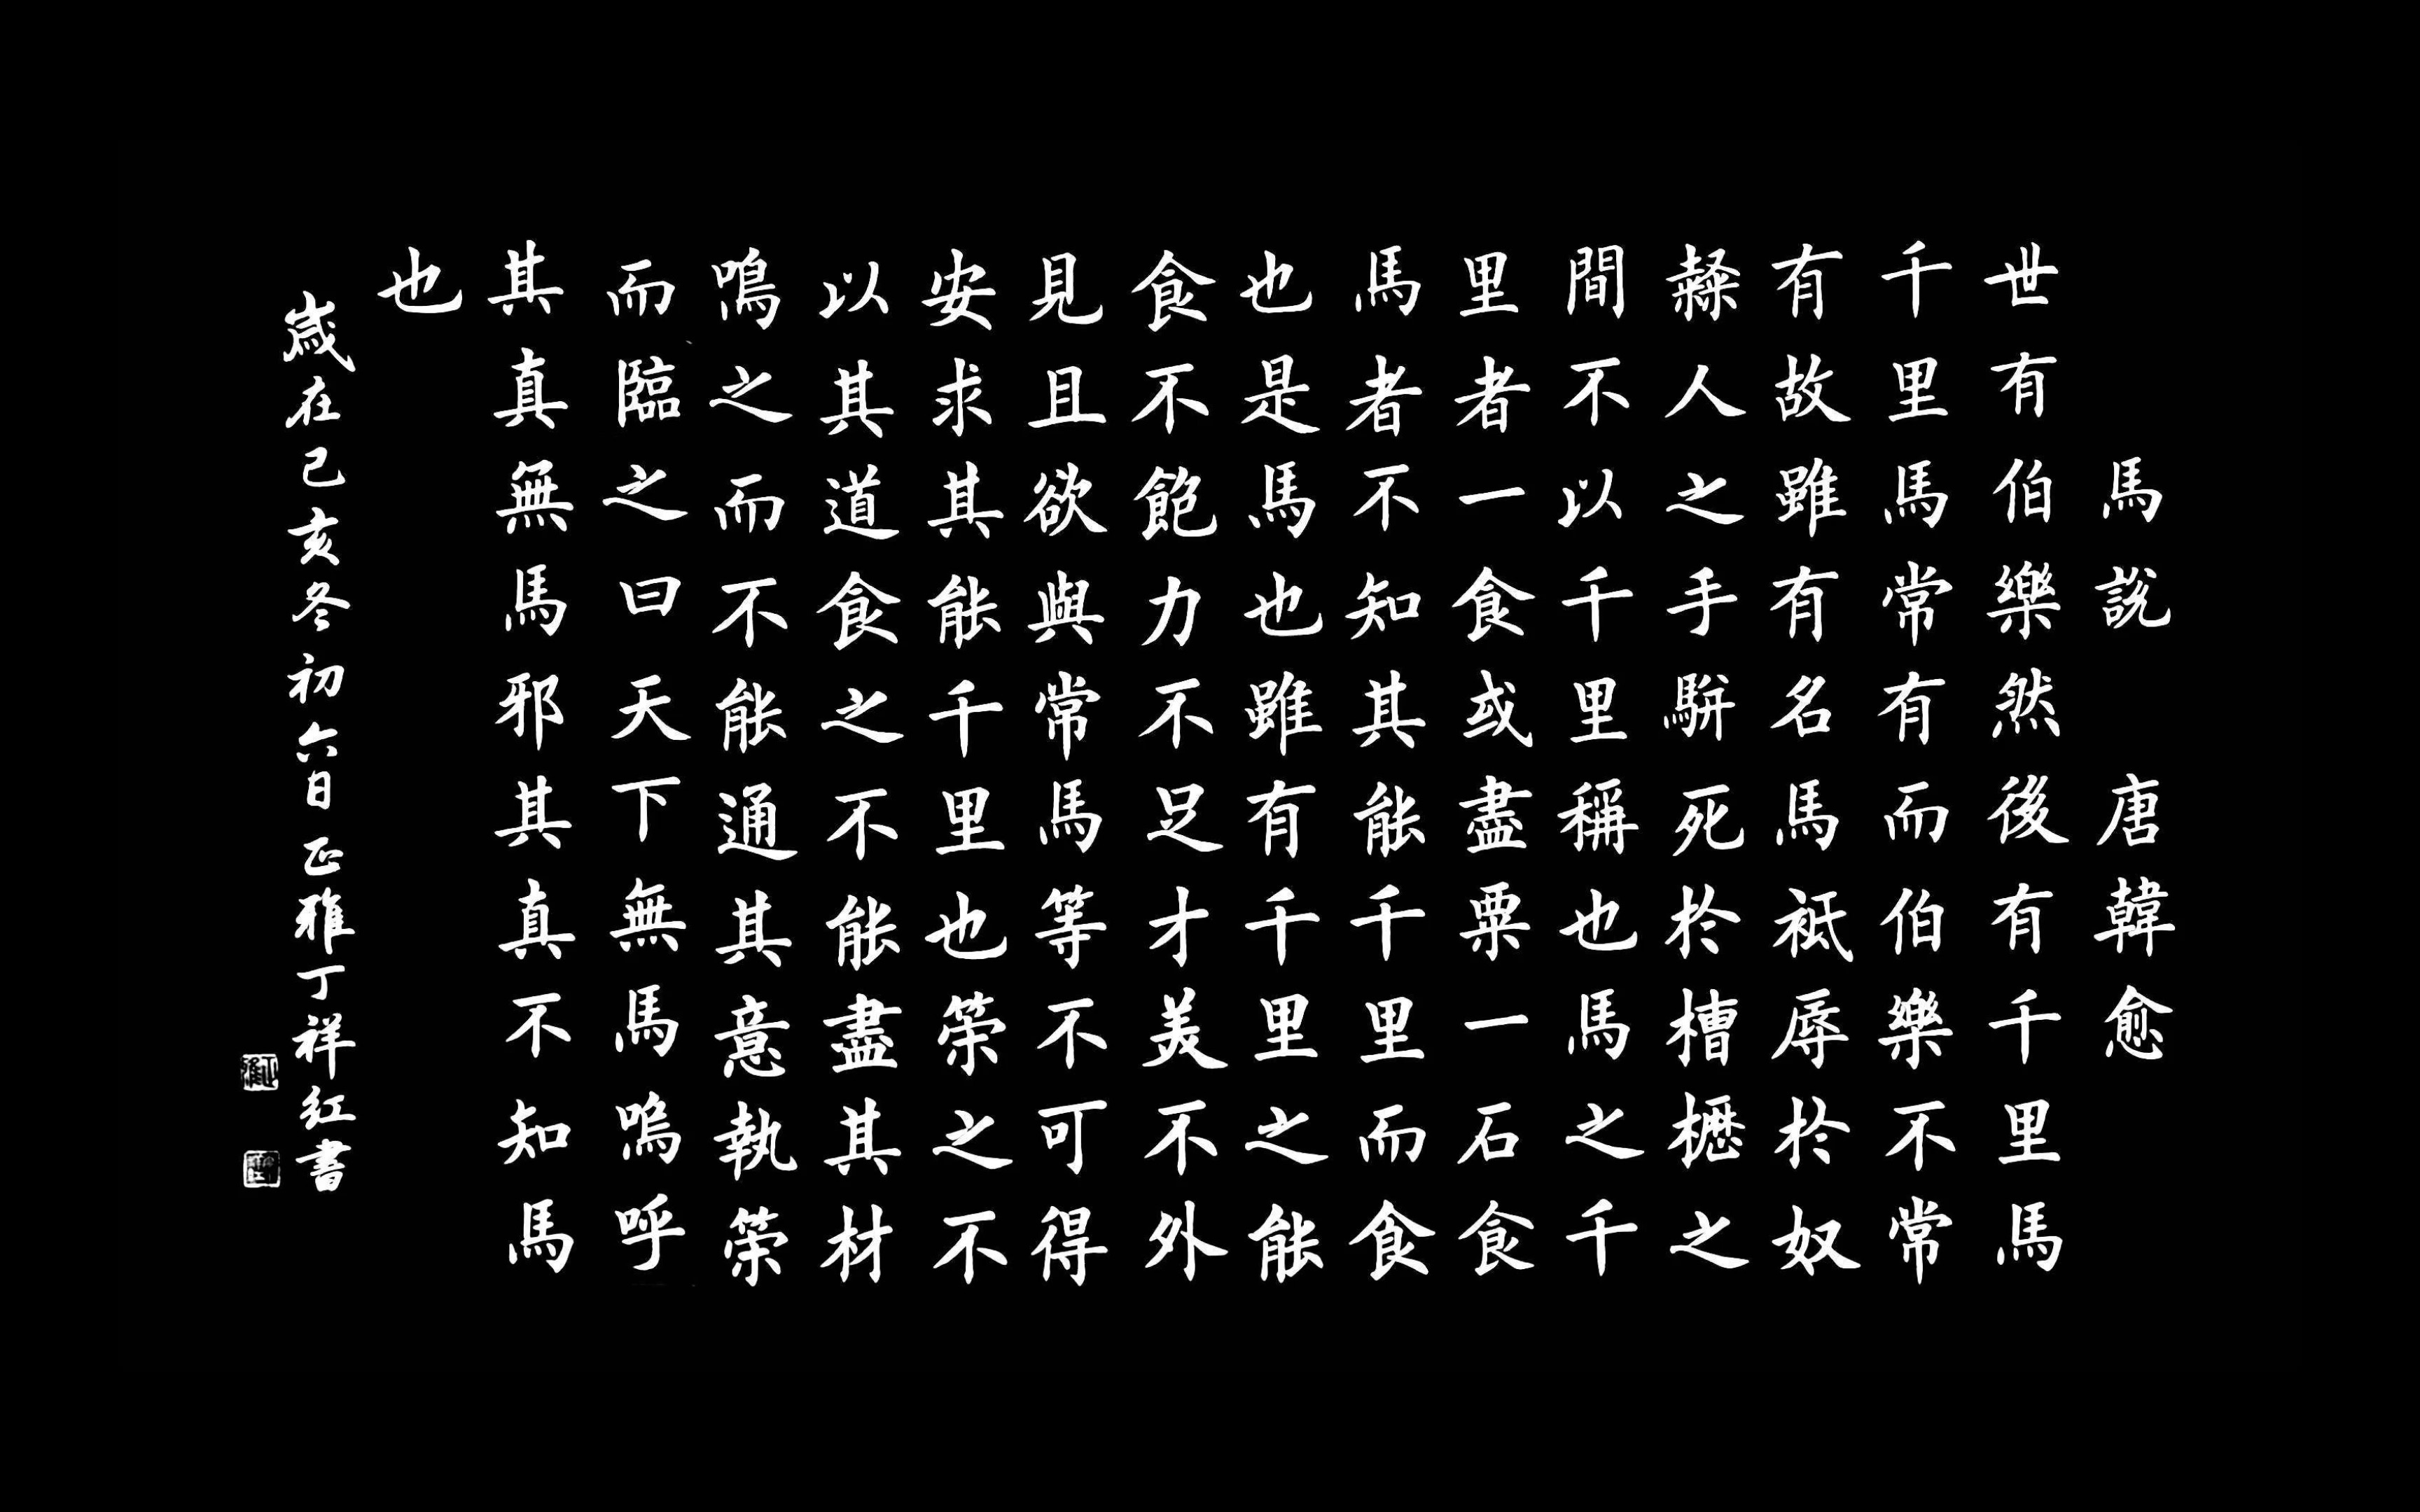 馬說 唐韓愈
世有伯樂然後有千里馬
千里馬常有而伯樂不常
有故雖有名馬祇辱於奴
隸人之手駢死於槽櫪之
間不以千里稱也馬之千
里者一食或盡粟一石食
馬者不知其能千里而食
也是馬也雖有千里之能
食不飽力不足才美不外
見且欲與常馬等不可得
安求其能千里也策之不
以其道食之不能盡其材
鳴之而不能通其意執策
而臨之曰天下無馬嗚呼
其真無馬邪其真不知馬
也
歲在己亥冬初六日正雅丁祥紅書